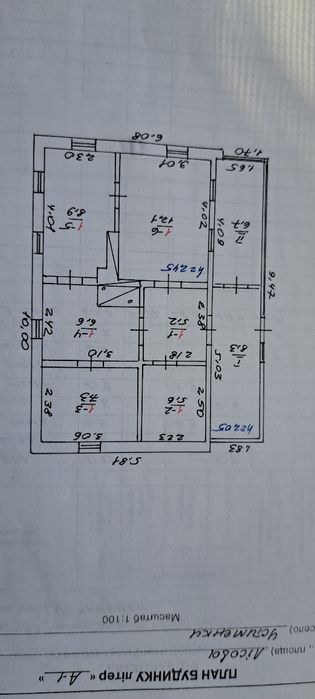 ПЛАН БУДИНКУ літер « А-1 »
, площа) Лісова
село) Устименки
Масштаб 1:100
5.81
1.83
h=2.05
2.23
3.06
2.50
1-2
5.6
1-3
7.3
2.38
5.03
I
8.3
2.18
3.10
2.38
1-1
5.2
1-4
6.6
2.42
10.00
9.47
h=2.45
4.09
II
6.7
4.02
1-6
12.1
1-5
8.9
4.01
1.65
3.01
2.30
1.70
6.08